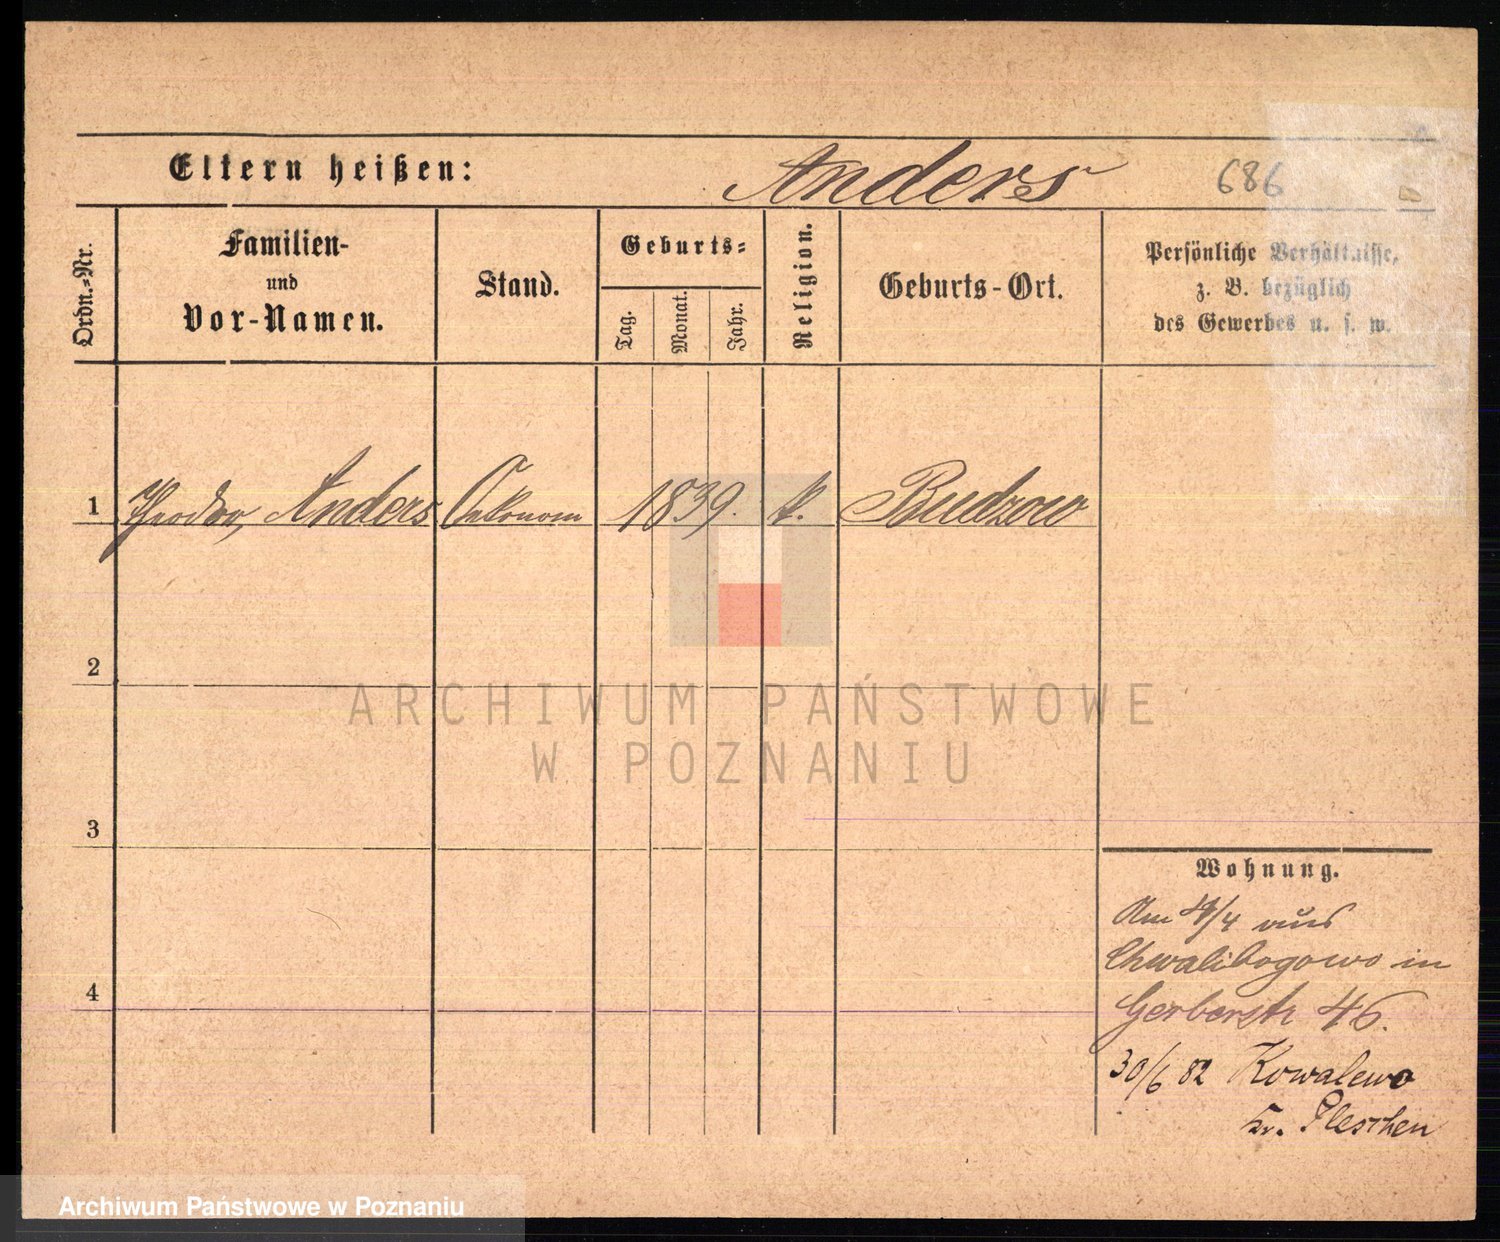 Eltern heißen: Anders 686
Ordn.-Nr.
Familien-
und
Vor-Namen.
Stand.
Geburts-
Tag.
Monat.
Jahr.
Religion.
Geburts-Ort.
Persönliche Verhältnisse,
z. B. bezüglich
des Gewerbes u. s. w.
1 Theodor, Anders Oekonom 1839. k. Budzow
2
3
4
Wohnung.
Am /4 aus
Chwalibogowo in
Gerberstr 46.
30/6 82 Kowalewo
Kr. Pleschen
ARCHIWUM PAŃSTWOWE
W POZNANIU
Archiwum Państwowe w Poznaniu